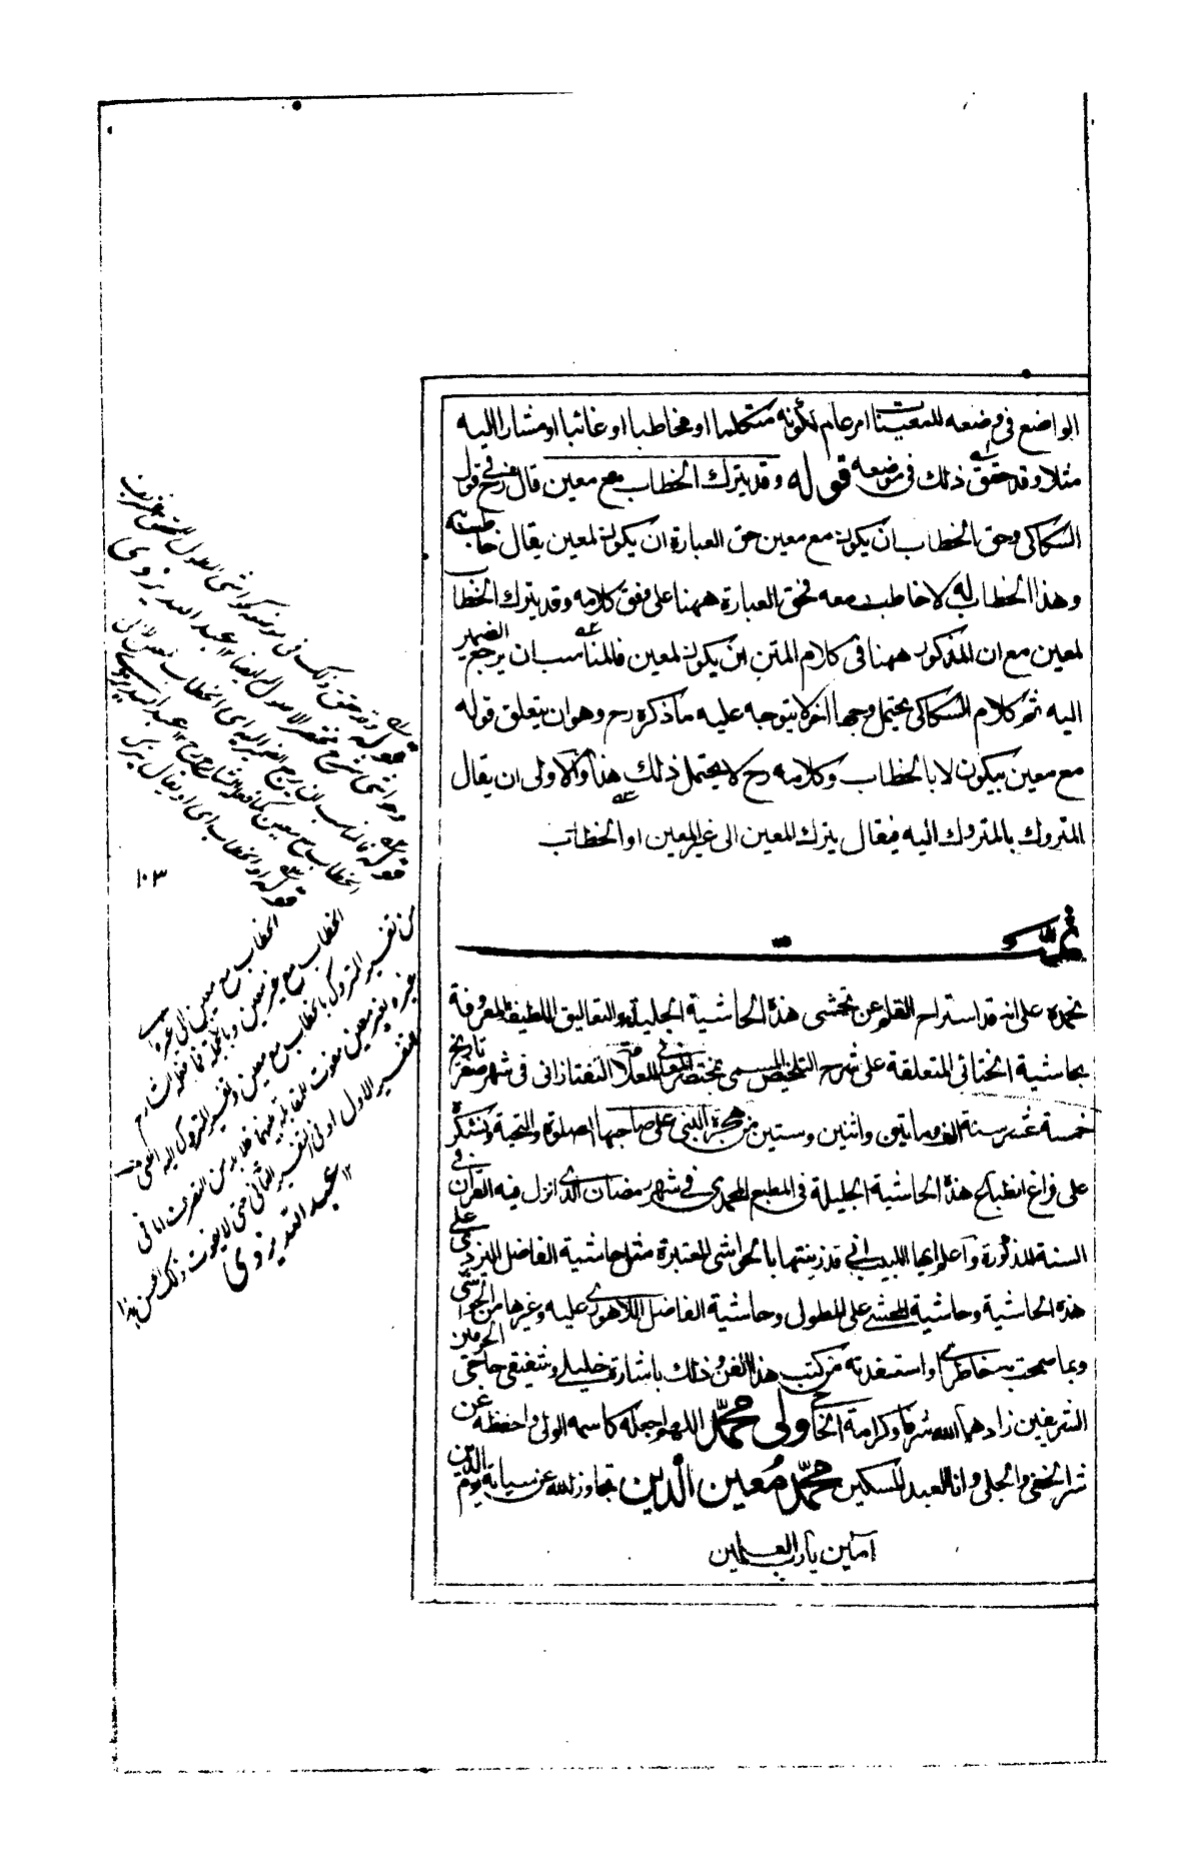 الواضع فى وضعه للمعينات امر عام لكونه متكلما او مخاطبا او غائبا او مشارا اليه
مثلا وقد حقق ذلك فى موضعه قوله وقد يترك الخطاب مع معين قال رح فى قول
السكاكى وحق الخطاب ان يكون مع معين حق العبارة ان يكون لمعين يقال خاطبه
وهذا الخطاب له لا خاطب معه فحق العبارة ههنا على وفق كلامه وقد يترك الخطاب
لمعين مع ان المذكور ههنا فى كلام المتن ان يكون لمعين فالمناسب ان يرجع الضمير
اليه ثم كلام السكاكى يحتمل وجها آخر لا يتوجه عليه ما ذكره رح وهو ان يتعلق قوله
مع معين بيكون لا بالخطاب وكلامه رح لا يحتمل ذلك هذا والاولى ان يقال
المتروك بالمتروك اليه فيقال يترك المعين الى غير المعين او الخطاب
تمت
نحمده على ان قد استراح القلم عن تحشى هذه الحاشية الجليلة والتعاليق اللطيفة المعروفة
بحاشية الختائى المتعلقة على شرح التلخيص المسمى بمختصر المعانى للعلامة التفتازانى فى شهر صفر تاريخ
خمسة عشر سنة الف ومايتين واثنين وستين من هجرة النبى على صاحبها الصلوة والتحية ونشكر
على فراغ انطباع هذه الحاشية الجليلة فى المطبع المحمدى فى شهر رمضان الذى انزل فيه القرآن فى
السنة المذكورة واعلم ايها اللبيب انى قد زينتها بالحواشى المعتبرة مثل حاشية الفاضل اليزدى على
هذه الحاشية وحاشية المحشى على المطول وحاشية الفاضل اللاهورى عليه وغيرها من الحواشى
وبما سمحت به خاطرى او استفدته من كتب هذا الفن وذلك باشارة خليلى وشفيقى حاجى الحرمين
الشريفين زادهما الله شرفا وكرامة الحاج ولى محمّد اللهم اجعله كاسمه الولى واحفظه عن
شر الخفى والجلى وانا العبد المسكين محمّد مُعين الدين تجاوز الله عن سياته يوم الدين
آمين يا رب العلمين
قوله وقد حقق ذلك فى موضعه
عبد الله يزدى
قوله فالمناسب ان يرجع الضمير اليه اى الخطاب
الخطاب مع معين كما فعله الشارح ١٢ عبد الله يزدى
قوله او الخطاب اى او يقال يترك
١٠٣
الخطاب مع معين الى غيره
الخطاب مع غير معين وبالجملة فما فعله الشارح
من تفسير المتروك بالخطاب مع معين وتفسير المتروك اليه
عبد الله يزدى